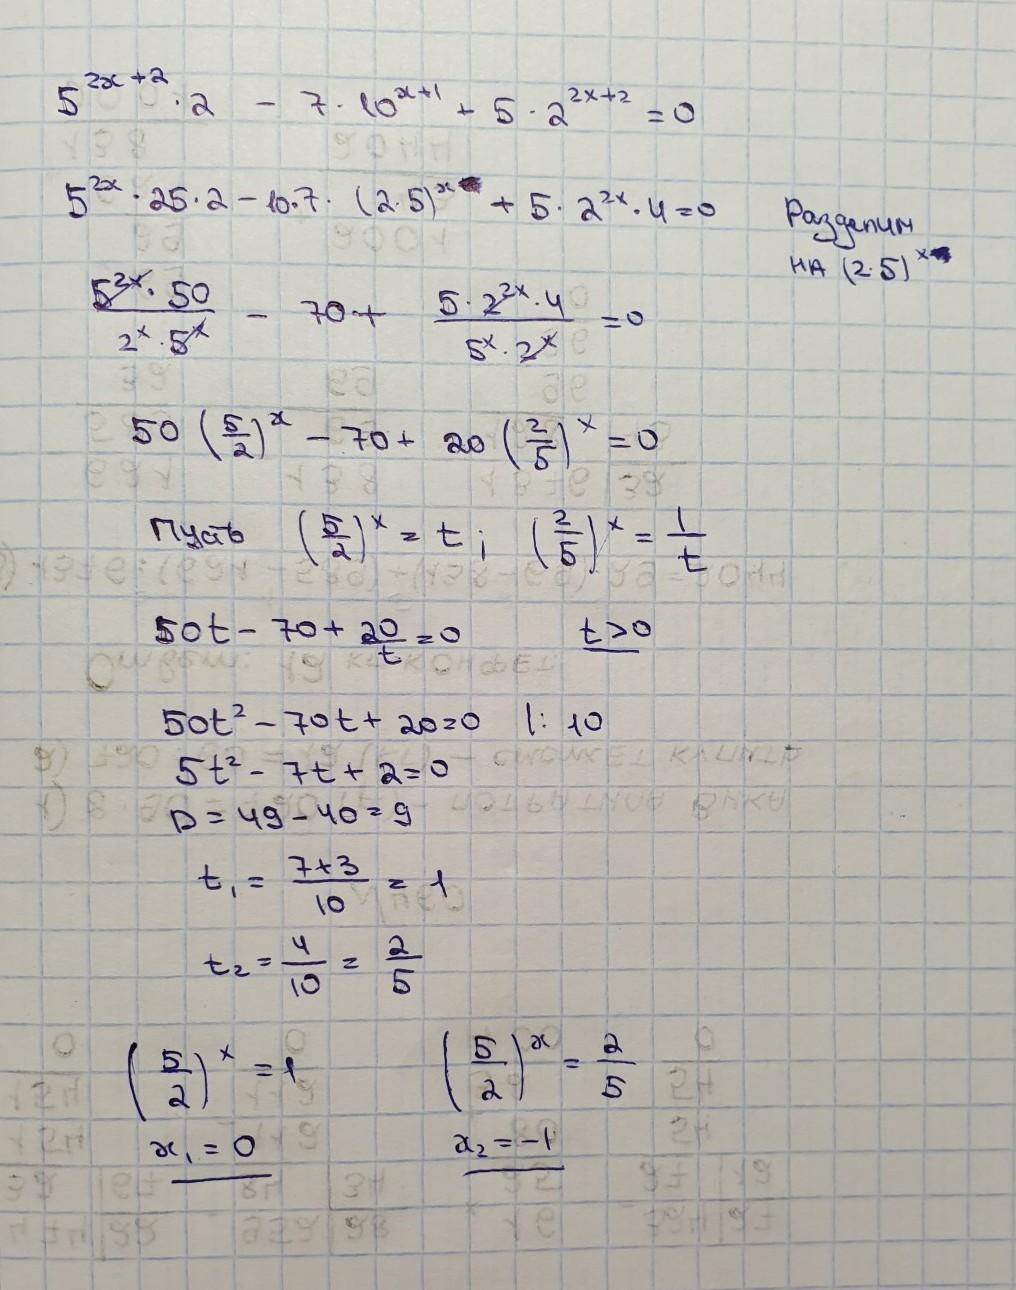 5^{2x+2} · 2 - 7 · 10^{x+1} + 5 · 2^{2x+2} = 0
5^{2x} · 25 · 2 - 10 · 7 · (2·5)^x + 5 · 2^{2x} · 4 = 0
Разделим
на (2·5)^x
\frac{5^{2x} · 50}{2^x · 5^x} - 70 + \frac{5 · 2^{2x} · 4}{5^x · 2^x} = 0
50 (\frac{5}{2})^x - 70 + 20 (\frac{2}{5})^x = 0
Пусть (\frac{5}{2})^x = t ; (\frac{2}{5})^x = \frac{1}{t}
50t - 70 + \frac{20}{t} = 0 t > 0
50t² - 70t + 20 = 0 |: 10
5t² - 7t + 2 = 0
D = 49 - 40 = 9
t₁ = \frac{7+3}{10} = 1
t₂ = \frac{4}{10} = \frac{2}{5}
(\frac{5}{2})^x = 1 (\frac{5}{2})^x = \frac{2}{5}
x₁ = 0 x₂ = -1